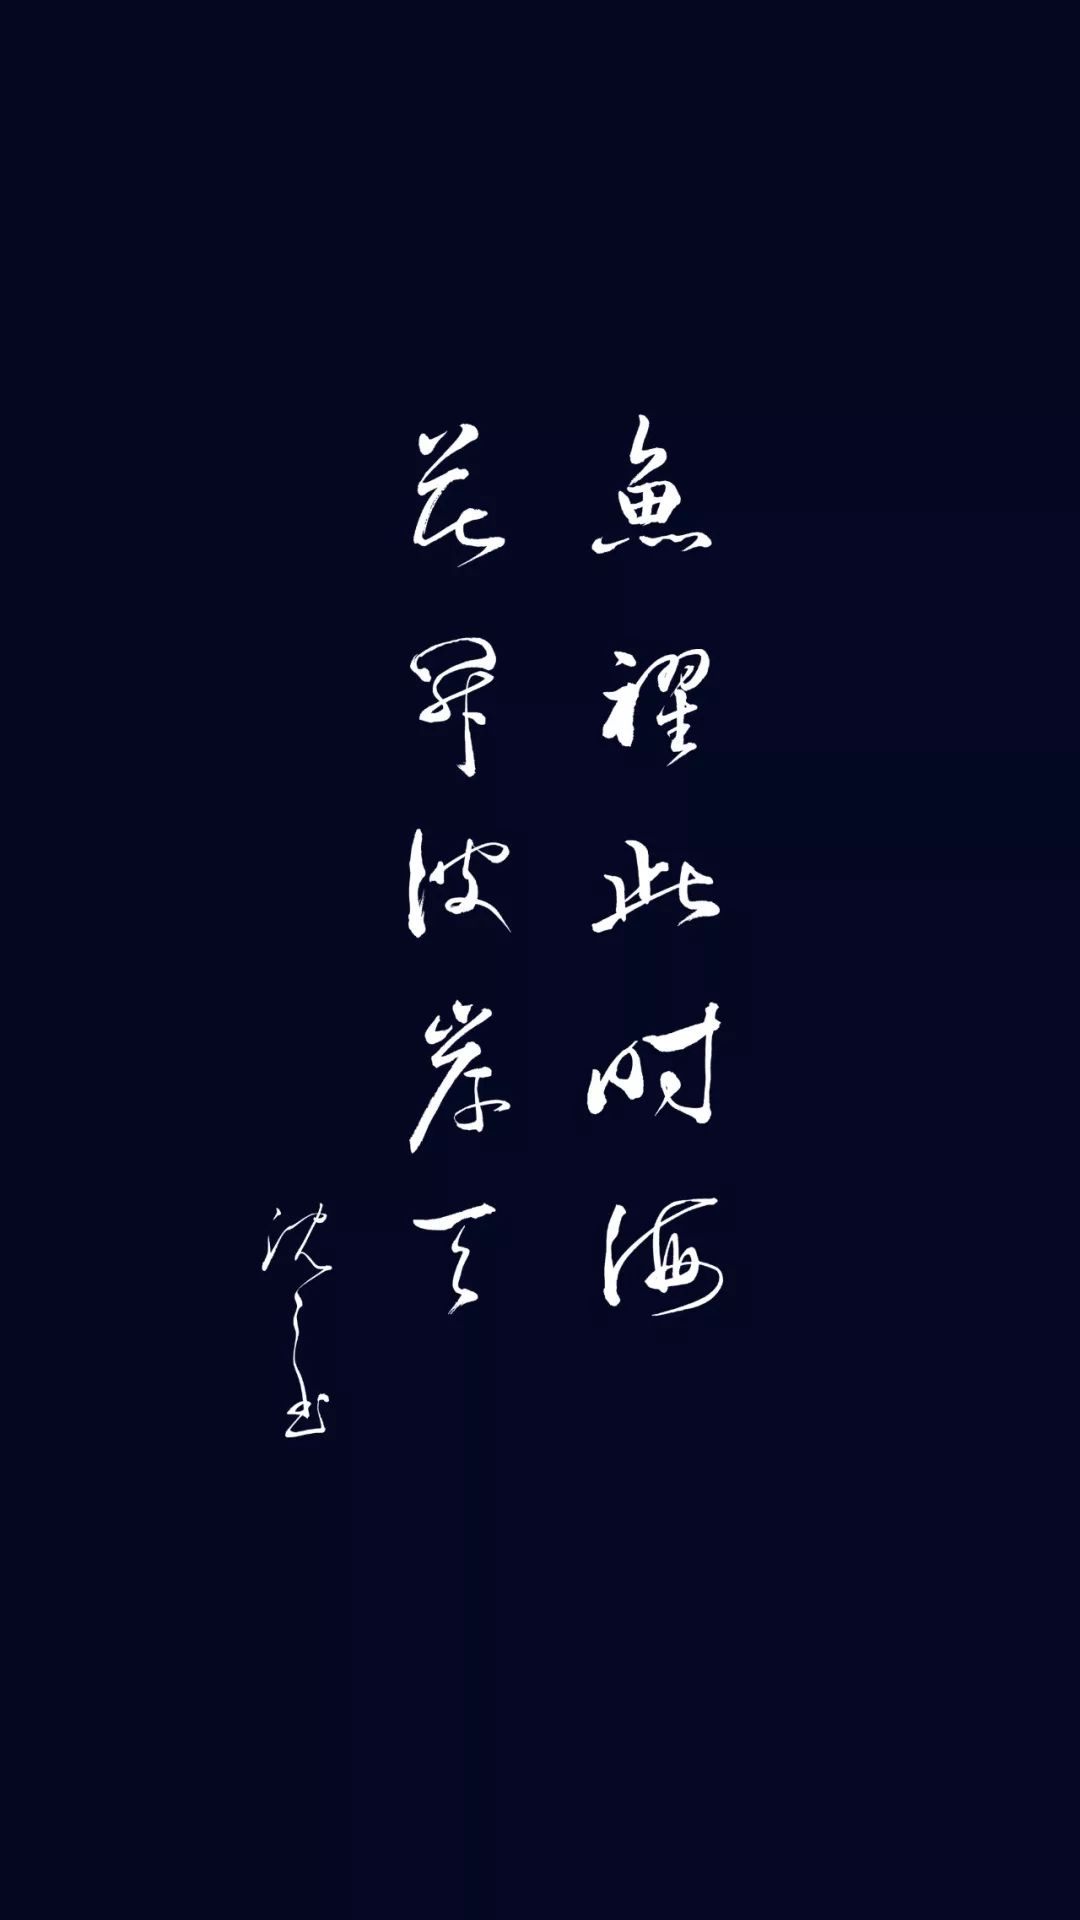 魚躍此時海
花開彼岸天
沈